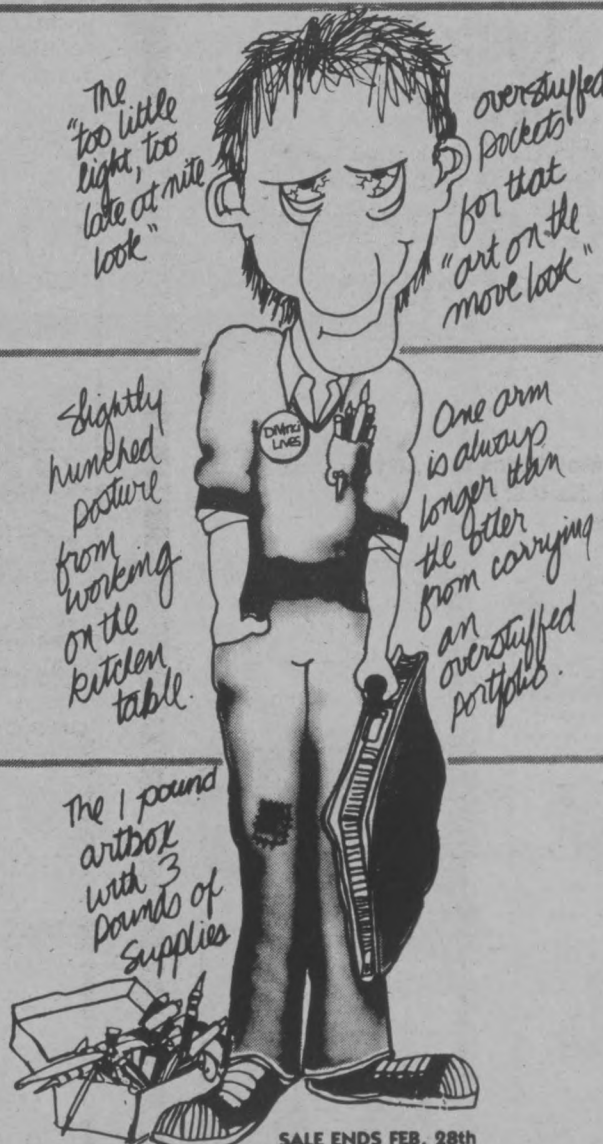 The
"too little
light, too
late at nite
look"
overstuffed
pockets
for that
"art on the
move look"
DiVinci
LIVES
Slightly
hunched
posture
from
working
on the
kitchen
table.
One arm
is always
longer than
the other
from carrying
an
overstuffed
portfolio.
The 1 pound
artbox
with 3
pounds of
supplies
SALE ENDS FEB. 28th